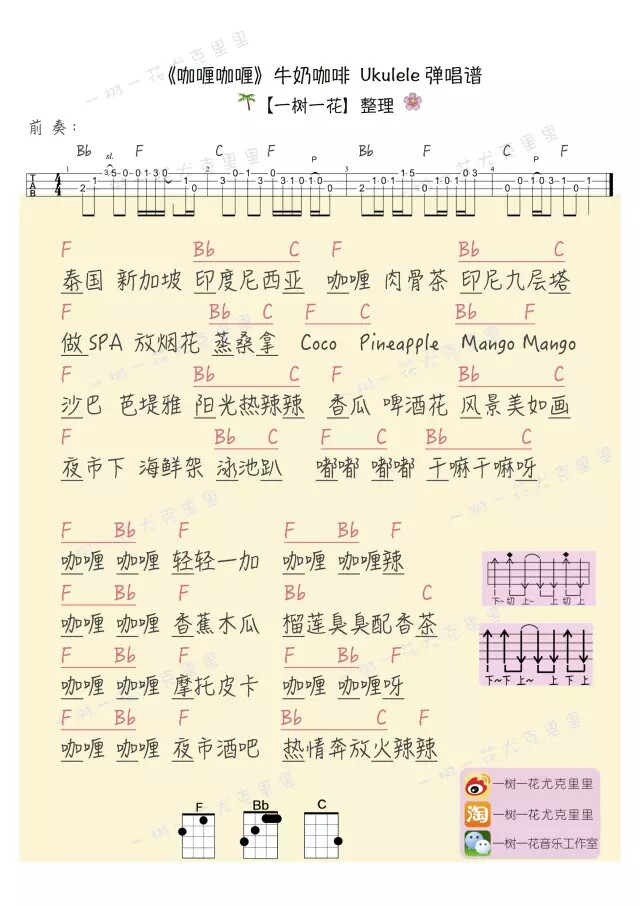 《咖喱咖喱》牛奶咖啡 Ukulele 弹唱谱
【一树一花】整理
前奏：
Bb F C F Bb F C F
F Bb C F Bb C
泰国 新加坡 印度尼西亚 咖喱 肉骨茶 印尼九层塔
F Bb C F C Bb F
做SPA 放烟花 蒸桑拿 Coco Pineapple Mango Mango
F Bb C F Bb C
沙巴 芭堤雅 阳光热辣辣 香瓜 啤酒花 风景美如画
F Bb C F C Bb C
夜市下 海鲜架 泳池趴 嘟嘟 嘟嘟 干嘛干嘛呀
F Bb F F Bb F
咖喱 咖喱 轻轻一加 咖喱 咖喱辣
F Bb F Bb C
咖喱 咖喱 香蕉木瓜 榴莲臭臭配香茶
F Bb F F Bb F
咖喱 咖喱 摩托皮卡 咖喱 咖喱呀
F Bb F Bb C F
咖喱 咖喱 夜市酒吧 热情奔放火辣辣
下~切 上~ 上 切 上
下~下 上~ 上 下 上
F Bb C
一树一花尤克里里
淘 一树一花尤克里里
一树一花音乐工作室